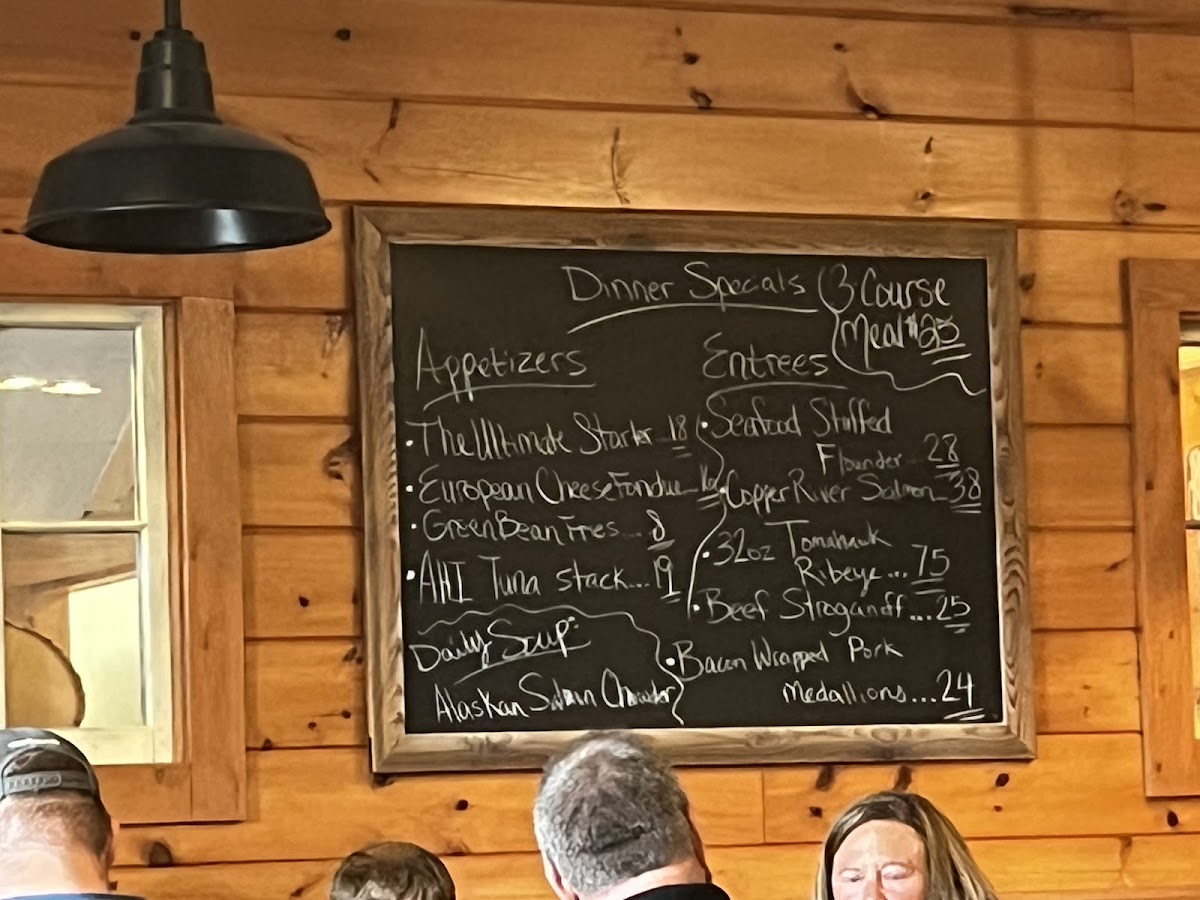 Dinner Specials
(3 Course
Meal $25
Appetizers
• The Ultimate Starter...18
• European Cheese Fondue...
• Green Bean Fries...8
• AHI Tuna stack...19
Daily Soup:
Alaskan Salmon Chowder
Entrees
• Seafood Stuffed
Flounder...28
• Copper River Salmon...38
• 32oz Tomahawk
Ribeye...75
• Beef Stroganoff...25
• Bacon Wrapped Pork
Medallions...24